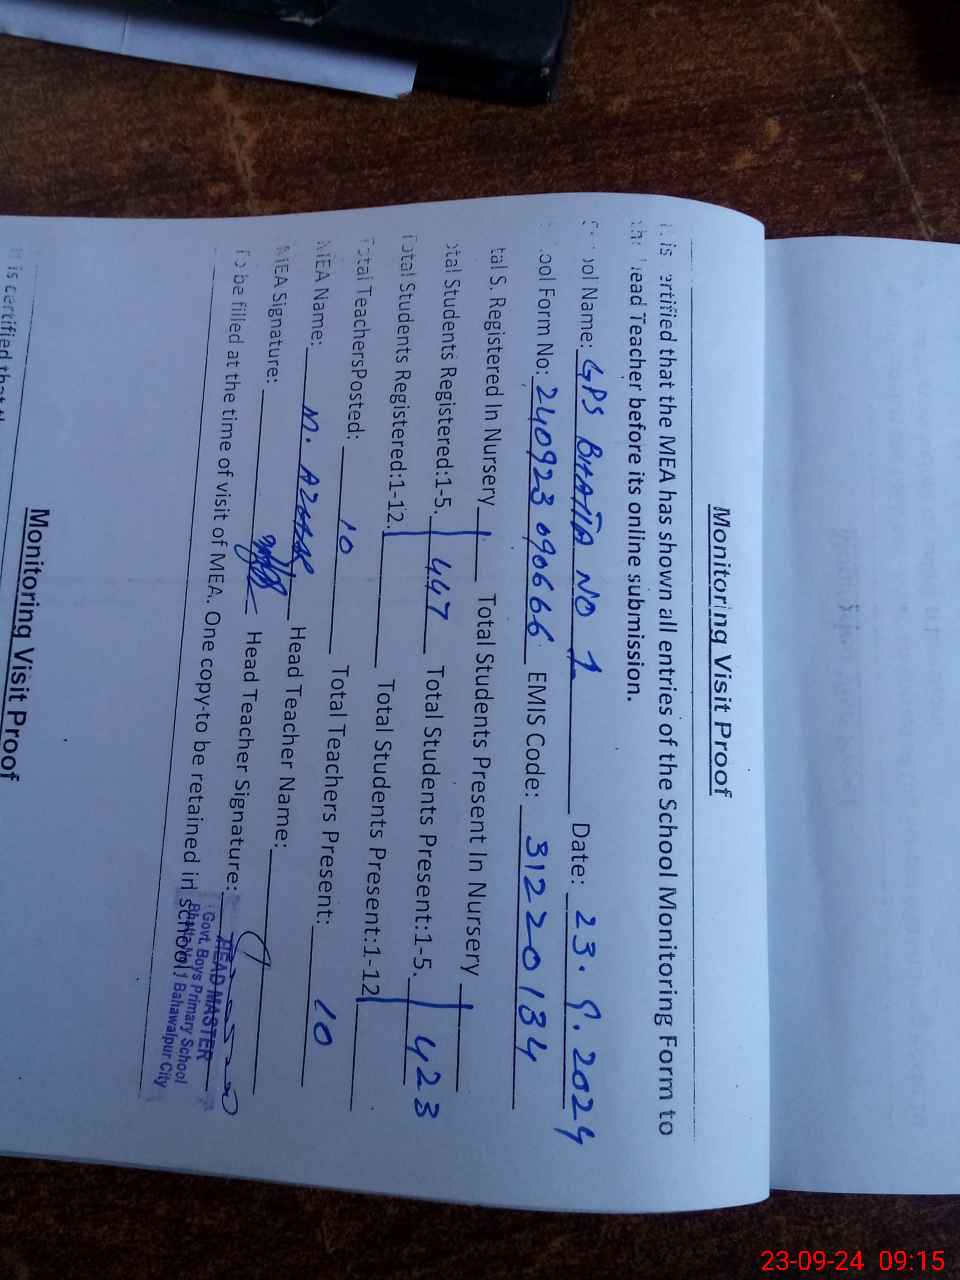 Monitoring Visit Proof
is ertified that the MEA has shown all entries of the School Monitoring Form to
lead Teacher before its online submission.
ool Name: GPS BHATTA NO 1 Date: 23.9.2024
ool Form No: 240923090666 EMIS Code: 31220134
tal S. Registered In Nursery Total Students Present In Nursery
otal Students Registered:1-5. 447 Total Students Present:1-5. 423
Total Students Registered:1-12. Total Students Present:1-12
Total TeachersPosted: 10 Total Teachers Present: 10
MEA Name: M. AZHAR Head Teacher Name:
MEA Signature: Head Teacher Signature:
To be filled at the time of visit of MEA. One copy-to be retained in school
HEAD MASTER
Govt. Boys Primary School
Bhatta No.1 Bahawalpur City
Monitoring Visit Proof
It is certified that
23-09-24 09:15